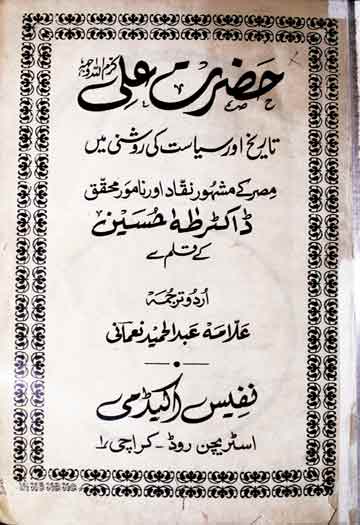 حضرت علی کرم اللہ وجہہ
تاریخ اور سیاست کی روشنی میں
مصر کے مشہور نقاد اور نامور محقق
ڈاکٹر طہٰ حسین
کے قلم سے
اردو ترجمہ
علامہ عبدالحمید نعمانی
نفیس اکیڈمی
اسٹریچن روڈ - کراچی ۱